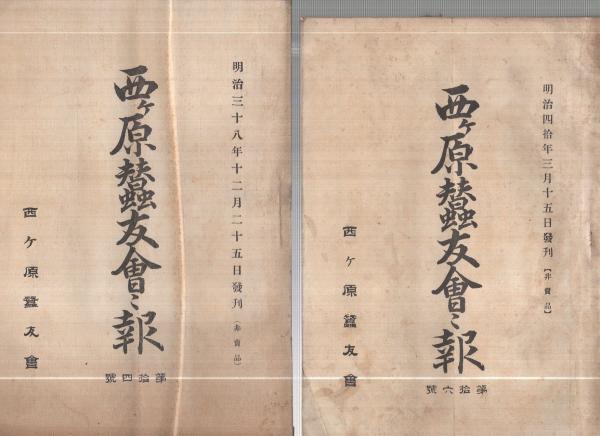 明治三十八年十二月二十五日發刊(非賣品)
西ヶ原蠶友會々報
第拾四號
西ヶ原蠶友會
明治四拾年三月十五日發刊【非賣品】
西ヶ原蠶友會々報
第拾六號
西ヶ原蠶友會